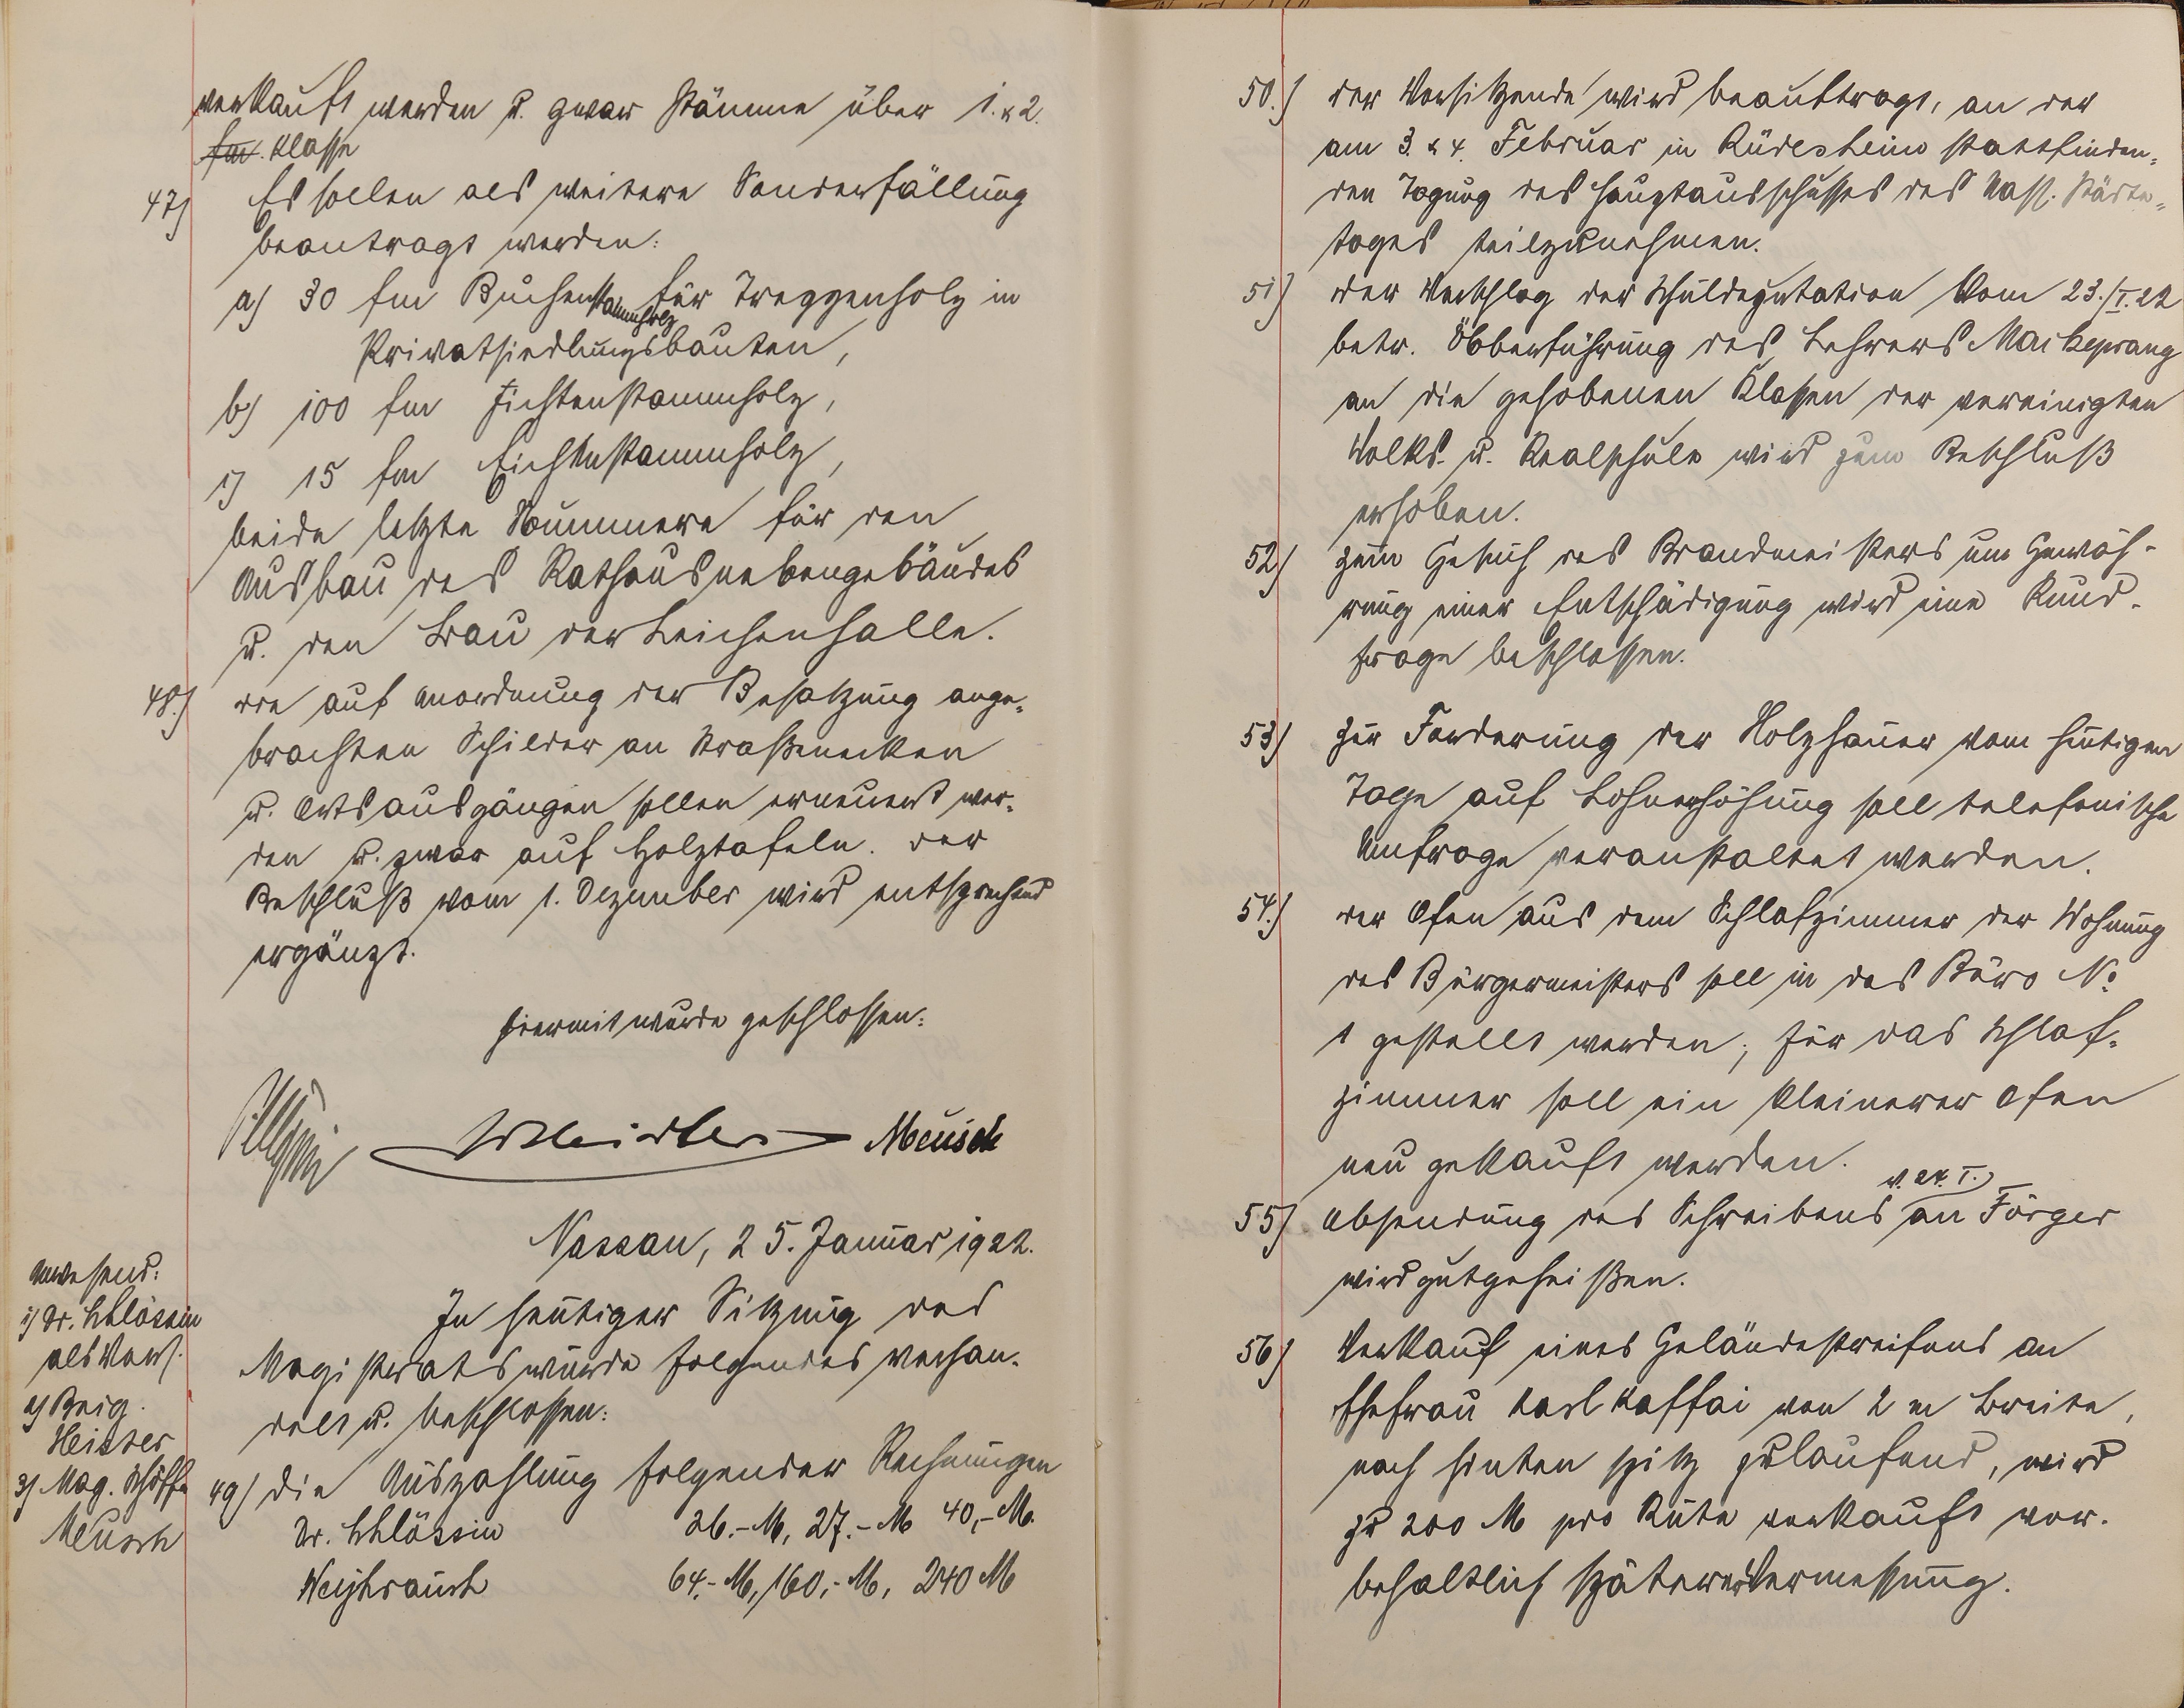 verkauft werden u. zwar Stämme über 1. & 2.
fm. Klasse
47) Es sollen als weitere Sonderfällung
beantragt werden:
a) 30 fm Buchenstammholz für Treppenholz in
Privatsiedlungsbauten,
b) 100 fm Fichtenstammholz,
c) 15 fm Eichenstammholz,
beide letzte Nummern für den
Ausbau des Rathausnebengebäudes
u. den Bau der Leichenhalle.
48.) die auf Anordnung der Besatzung ange-
brachten Schilder an Straßenecken
u. Ortsausgängen sollen erneuert wer-
den u. zwar auf Holztafeln. der
Beschluß vom 1. Dezember wird entsprechend
ergänzt.
hiermit wurde geschlossen:
Meusch
Nassau, 25. Januar 1922.
Anwesend:
1) Dr. Schlössin
als Vors.
2) Beig.
Heister
3) Mag. Schöffe
Meusch
In heutiger Sitzung des
Magistrats wurde folgendes verhan-
delt u. beschlossen:
49) die Auszahlung folgender Rechnungen
Dr. Schlössin 26.- M, 27.- M 40,- M.
Weihrauch 64.- M, 160,- M, 240 M
50.) der Vorsitzende wird beauftragt, an der
am 3. & 4. Februar in Rüdesheim stattfinden-
den Tagung des Hauptausschusses des Nass. Städte-
tages teilzunehmen.
51) der Vorschlag der Schuldeputation vom 23./I.22
betr. Überführung des Lehrers Maikeprang
an die gehobenen Klassen der vereinigten
Volks- u. Realschule wird zum Beschluß
erhoben.
52) zum Gesuch des Brandmeisters um Gewäh-
rung einer Entschädigung wird eine Rund-
frage beschlossen.
53) zur Forderung der Holzhauer vom heutigen
Tage auf Lohnerhöhung soll telefonische
Umfrage veranstaltet werden.
54.) der Ofen aus dem Schlafzimmer der Wohnung
des Bürgermeisters soll in das Büro No
1 gestellt werden; für das Schlaf-
zimmer soll ein kleinerer Ofen
neu gekauft werden.
55) Absendung des Schreibens v. 24. I. an Förger
wird gutgeheißen.
56) Verkauf eines Geländestreifens an
Ehefrau Karl Kaffai von 2 m Breite,
nach hinten spitz zulaufend, wird
zu 200 M pro Rute verkauft vor-
behaltlich späterer Vermessung.